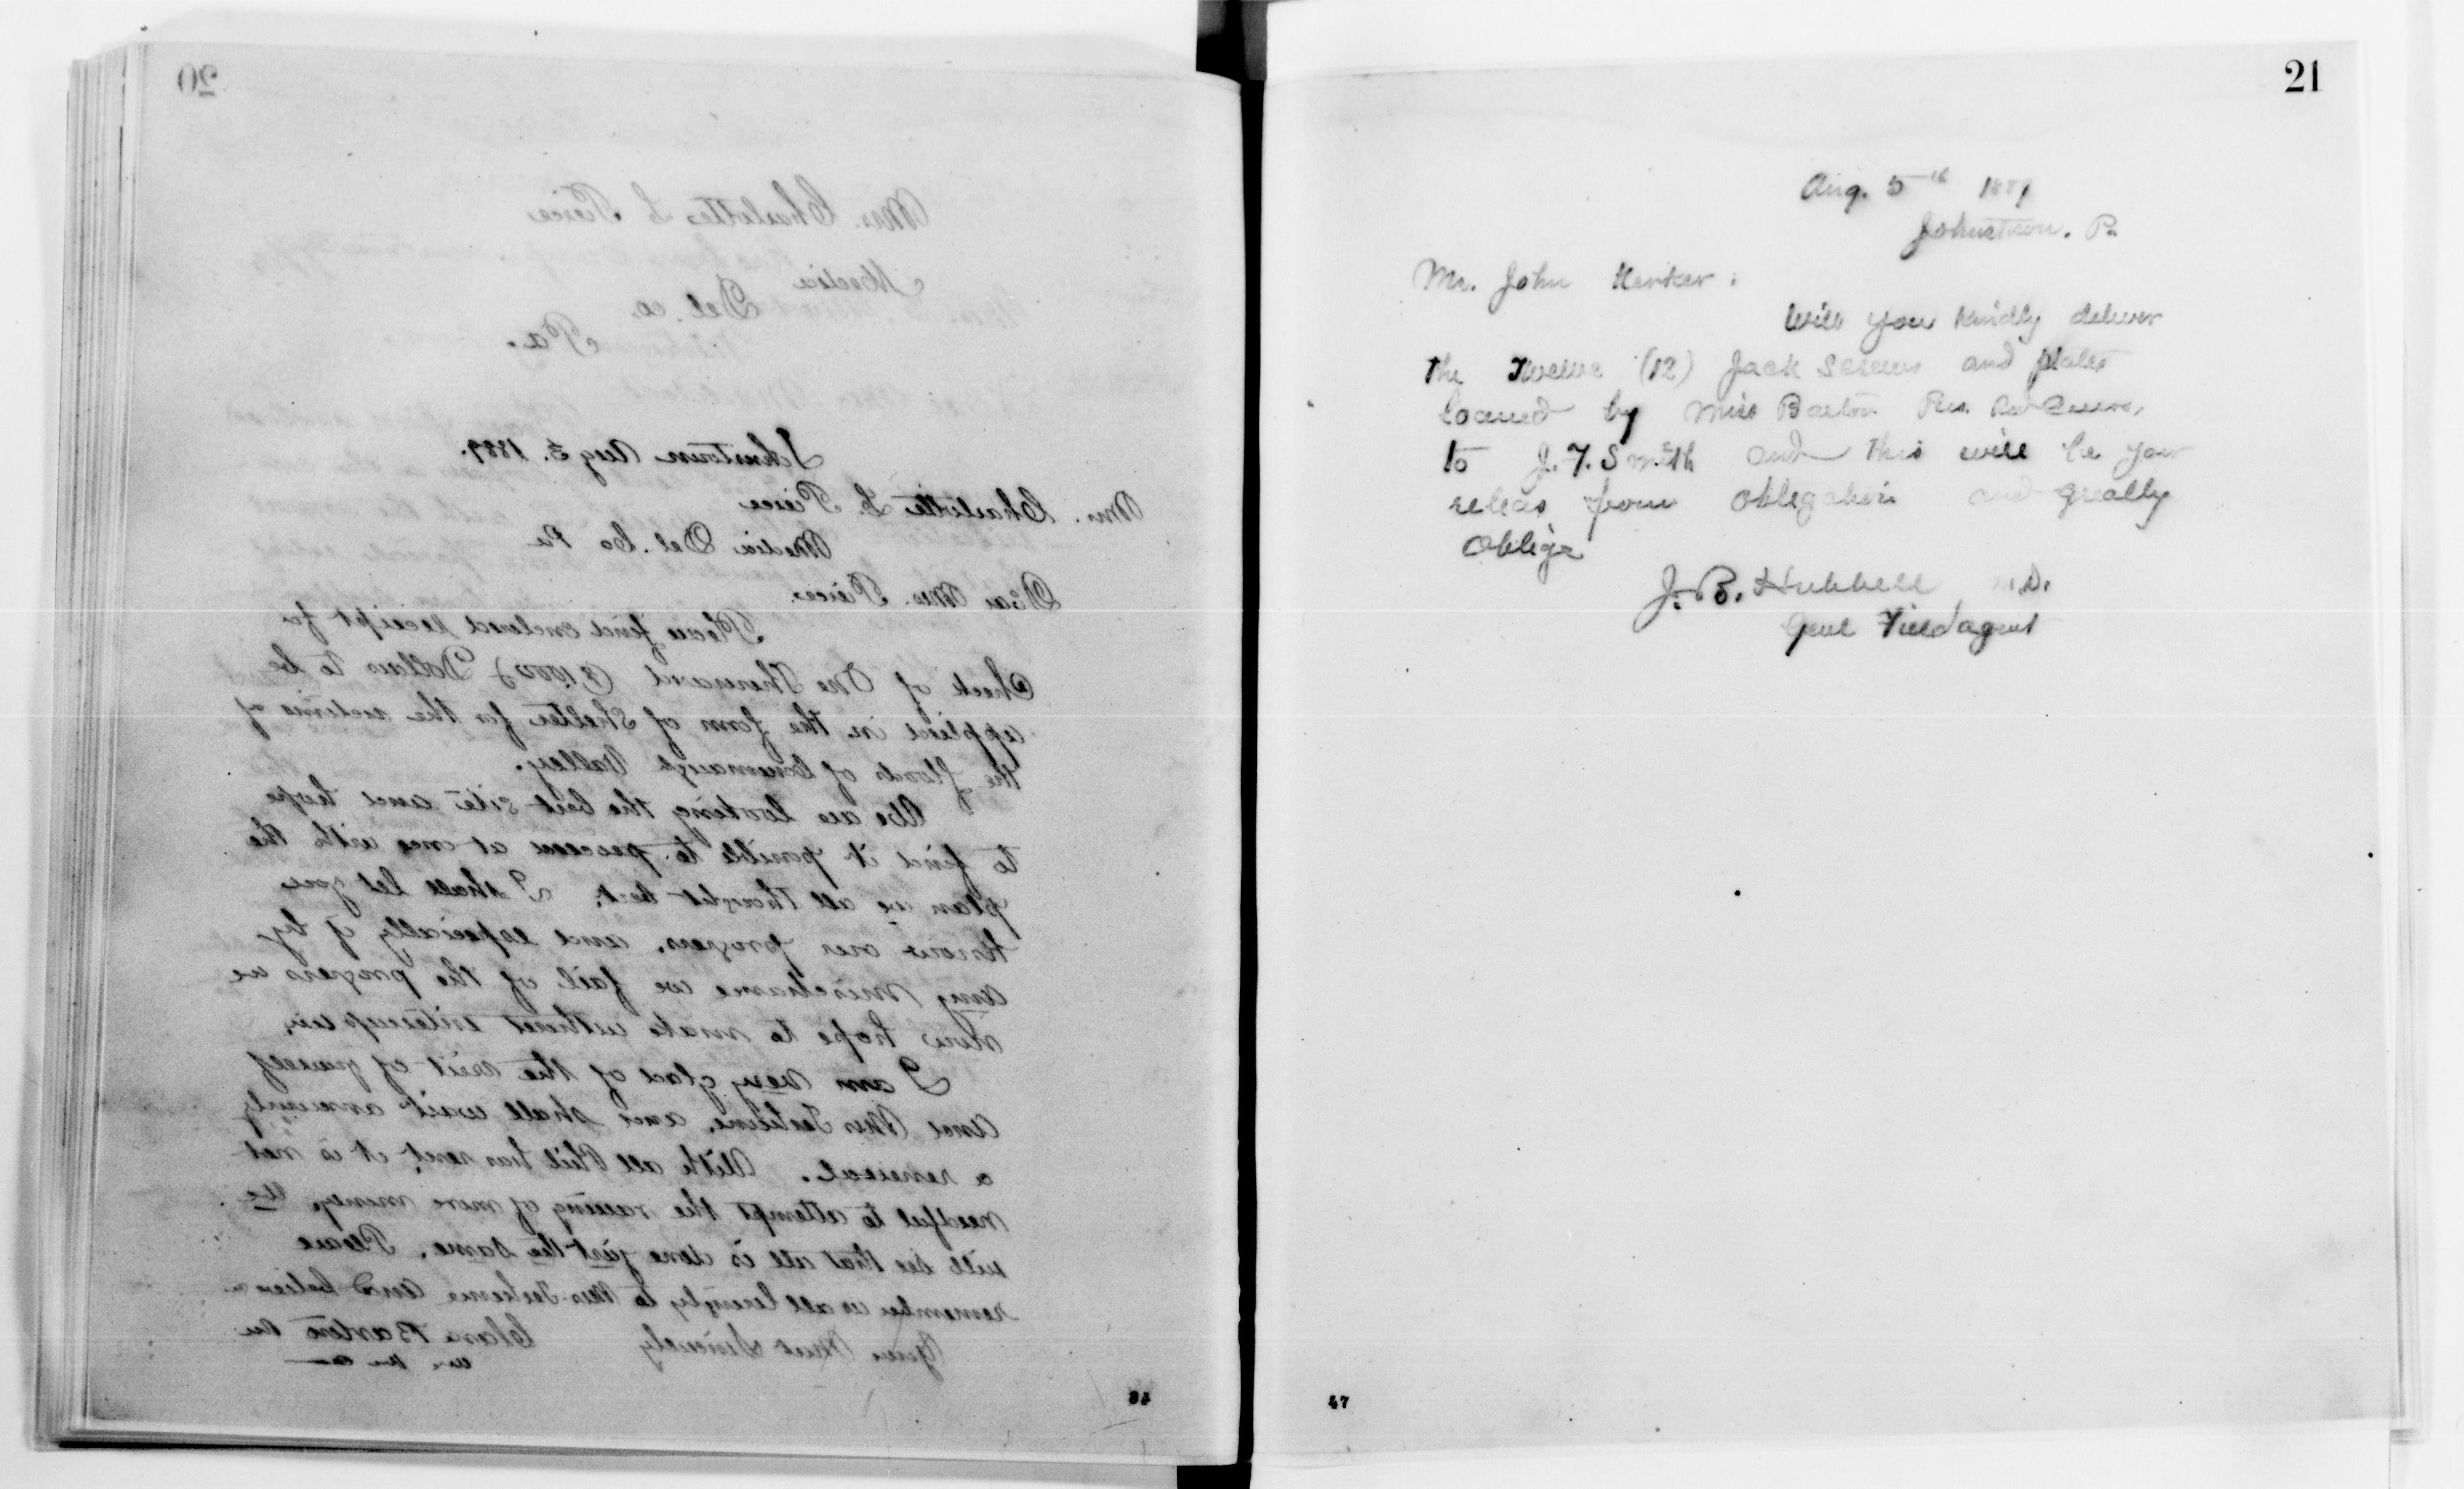 20
Mrs. Charlotte L Peirce
Media
Del. co.
Pa.
Johnstown Aug 5. 1889.
Mrs. Charlotte L. Peirce
Media Del. Co Pa
Dear Mrs. Peirce.
Please find enclosed receipt for
Check of One Thousand ($1000) Dollars to be
applied in the form of Shelter for the victims of
the floods of Conemaugh Valley.
We are looking the best site and hope
to find it possible to proceed at once with the
plan we all thought best. I shall let you
know our progress, and especially if by
any mischance we fail of the progress we
now hope to make without interruption.
I am very glad of the visit of yourself
and Mrs and shall await anxiously
a renewal. With all Phil has sent, it is not
needful to attempt the raising of more money, we
will see that all is done just the same. Please
remember us all lovingly to Mrs and believe
Yours Most Sincerely Clara Barton
46
21
Aug. 5th 1889
Johnstown. Pa
Mr. John Kerker:
Will you kindly deliver
the Twelve (12) Jack Screws and plates
loaned by Miss Barton Pres. Red Cross,
to J. F. Smith and this will be your
releas from obligation and greatly
Oblige
J. B. Hubbell M.D.
Genl Field agent
47